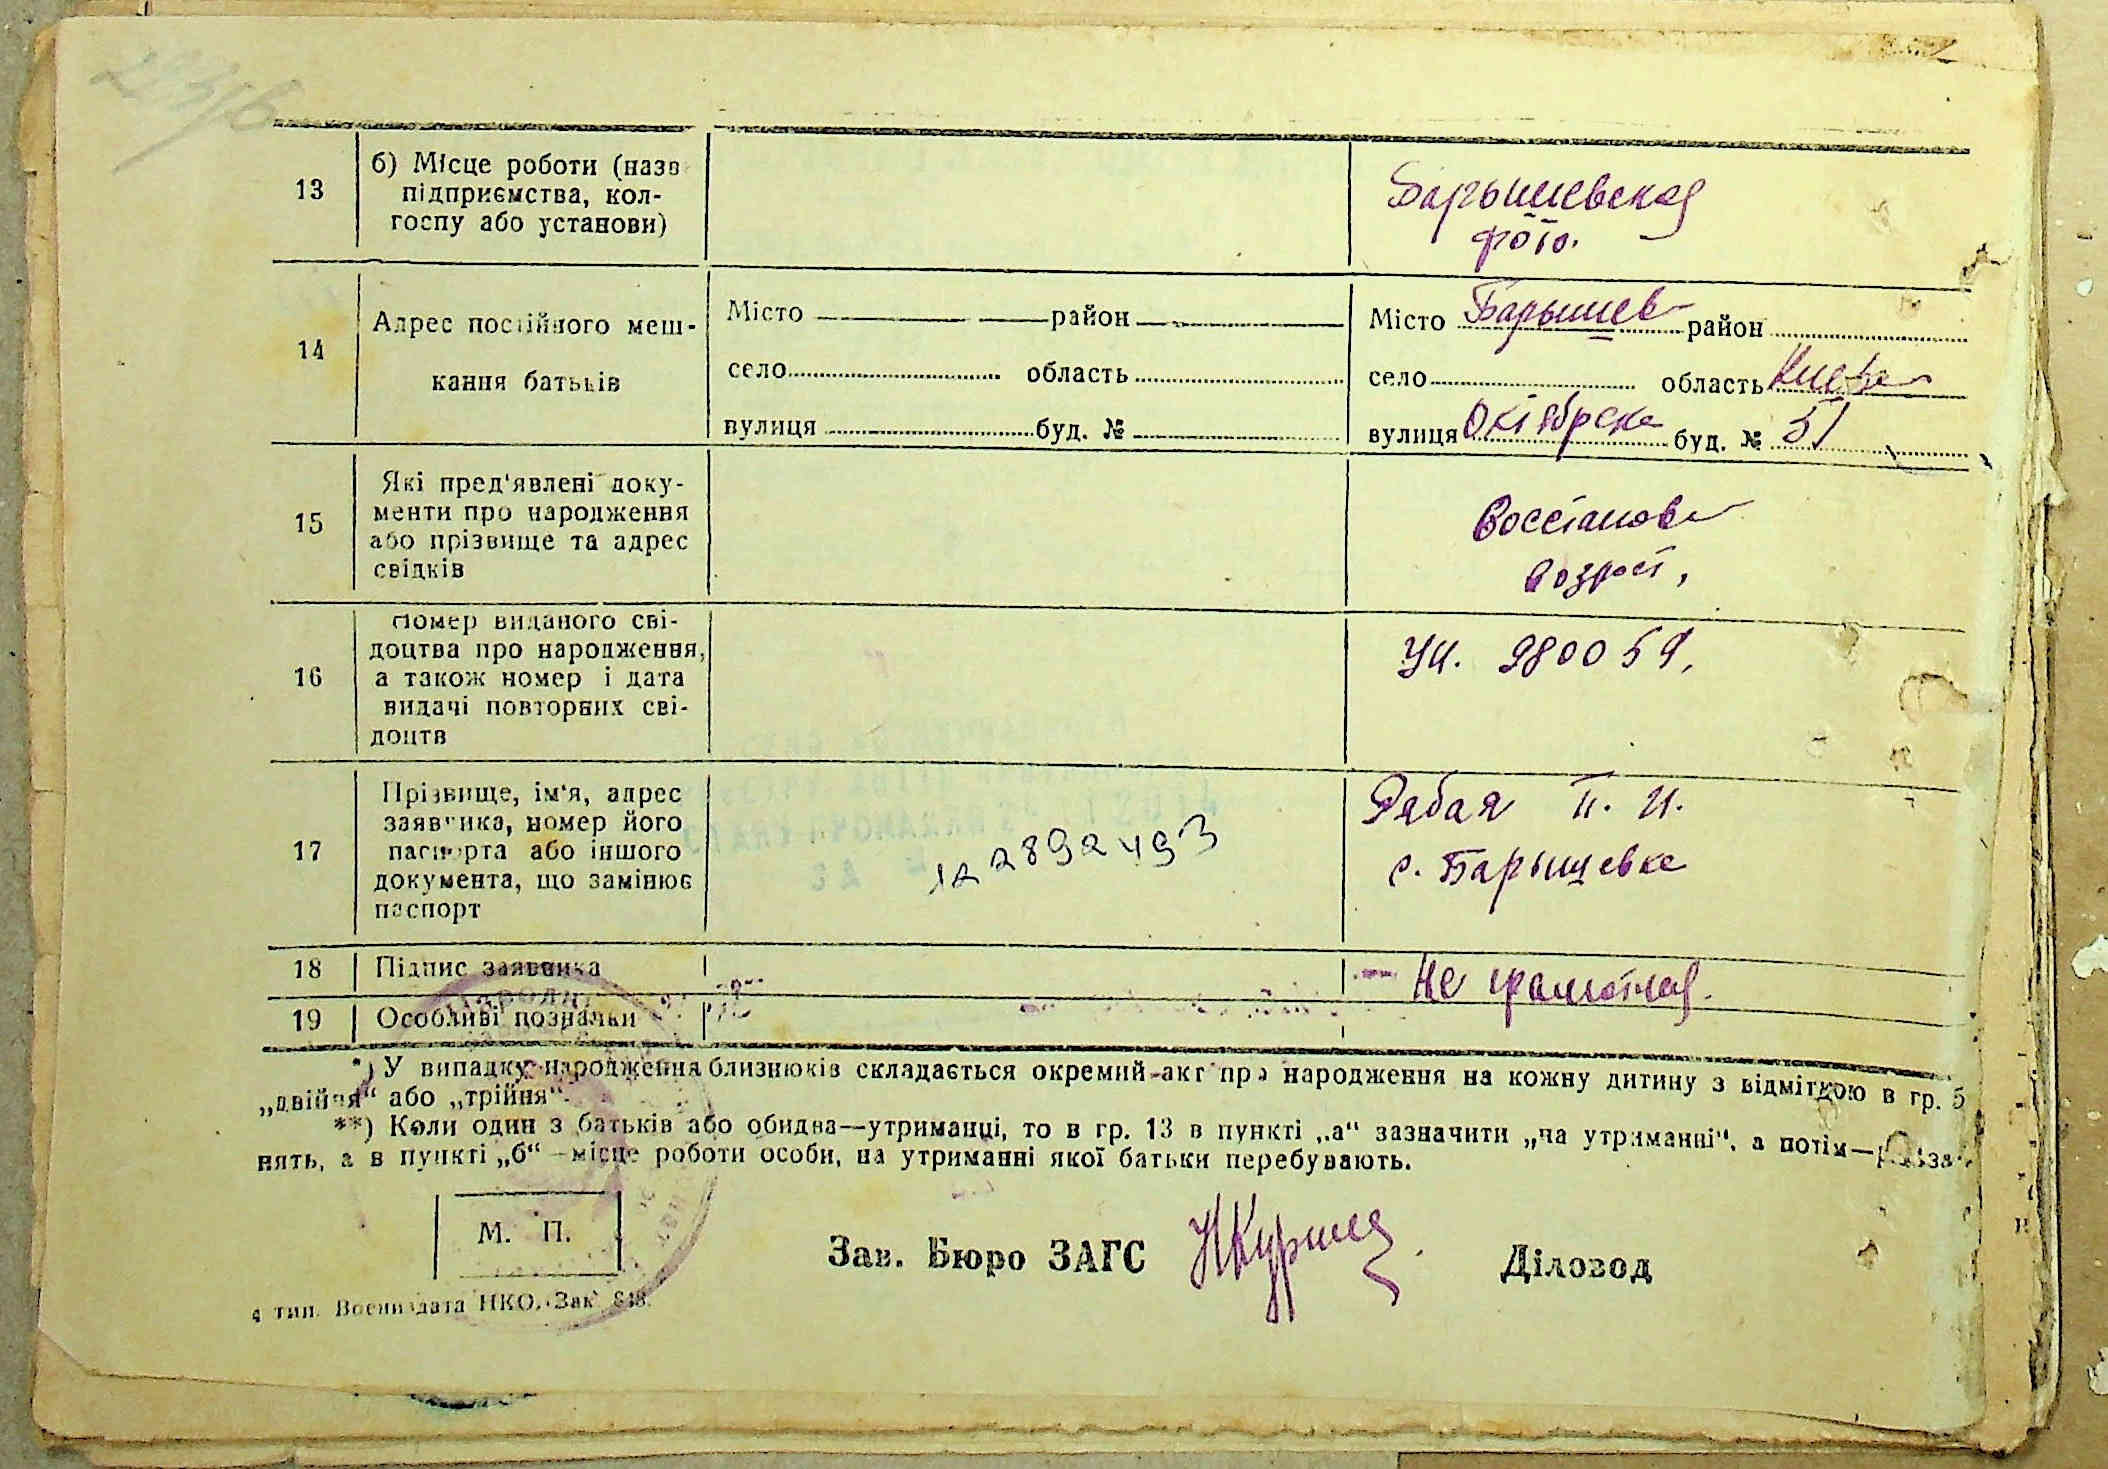 13
б) Місце роботи (назв
підприємства, кол-
госпу або установи)
Барышевская
фото.
14
Адрес постійного меш-
кання батьків
Місто район
село область
вулиця буд. №
Місто Барышев район
село область Киевск
вулиця Октябрска буд. № 51
15
Які пред'явлені доку-
менти про народження
або прізвище та адрес
свідків
Восстанов
возраст,
16
Номер виданого сві-
доцтва про народження,
а також номер і дата
видачі повторних сві-
доцтв
УИ. 980059.
17
Прізвище, ім'я, адрес
заявника, номер його
паспорта або іншого
документа, що замінює
паспорт
122892493
Рябая П. И.
с. Барышевка
18
Підпис заявника
— Не грамотная.
19
Особливі позначки
*) У випадку народження близнюків складається окремий акт про народження на кожну дитину з відміткою в гр. 5
„двійня“ або „трійня“.
**) Коли один з батьків або обидва—утриманці, то в гр. 13 в пункті „а“ зазначити „на утриманні“, а потім—
нять, а в пункті „б“ —місце роботи особи, на утриманні якої батьки перебувають.
М. П.
Зав. Бюро ЗАГС
Діловод
4 тип. Воениздата НКО. Зак. 848.